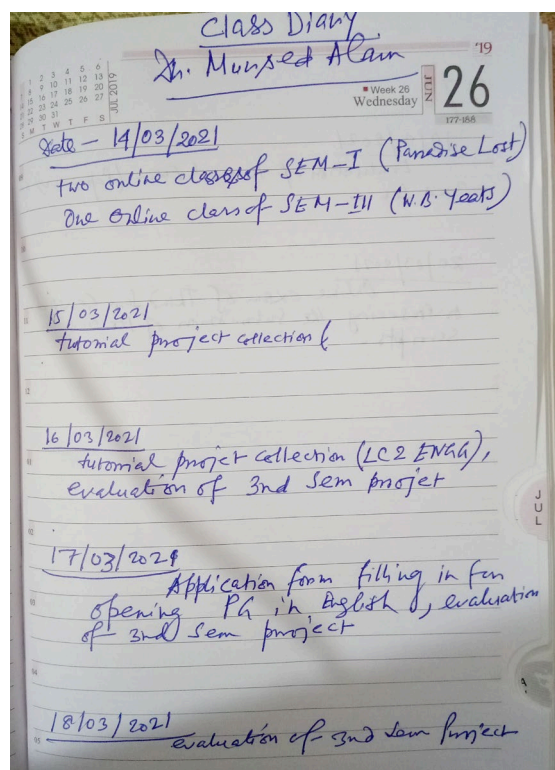 Class Diary
Dr. Munsed Alam
'19
Week 26
Wednesday
JUN
26
177-188
JUL 2019
Date - 14/03/2021
two online classes of SEM-I (Paradise Lost)
One online class of SEM-III (W.B. Yeats)
15/03/2021
tutorial project collection
16/03/2021
tutorial projet collection (LC2 ENGG),
evaluation of 3nd Sem projet
17/03/2021
Application form filling in for
opening PG in English, evaluation
of 3nd Sem project
18/03/2021
evaluation of 3nd Sem Project
JUL